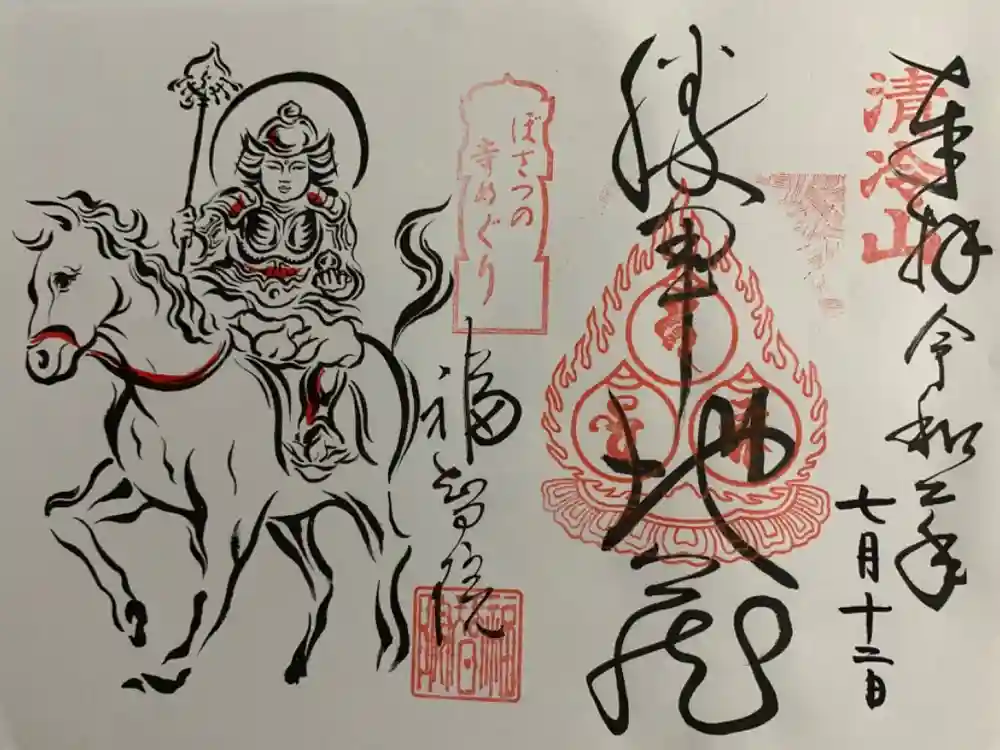 奉拝
令和二年
七月十二日
清冷山
勝軍地蔵
ぼさつの
寺めぐり
福智院
福智院